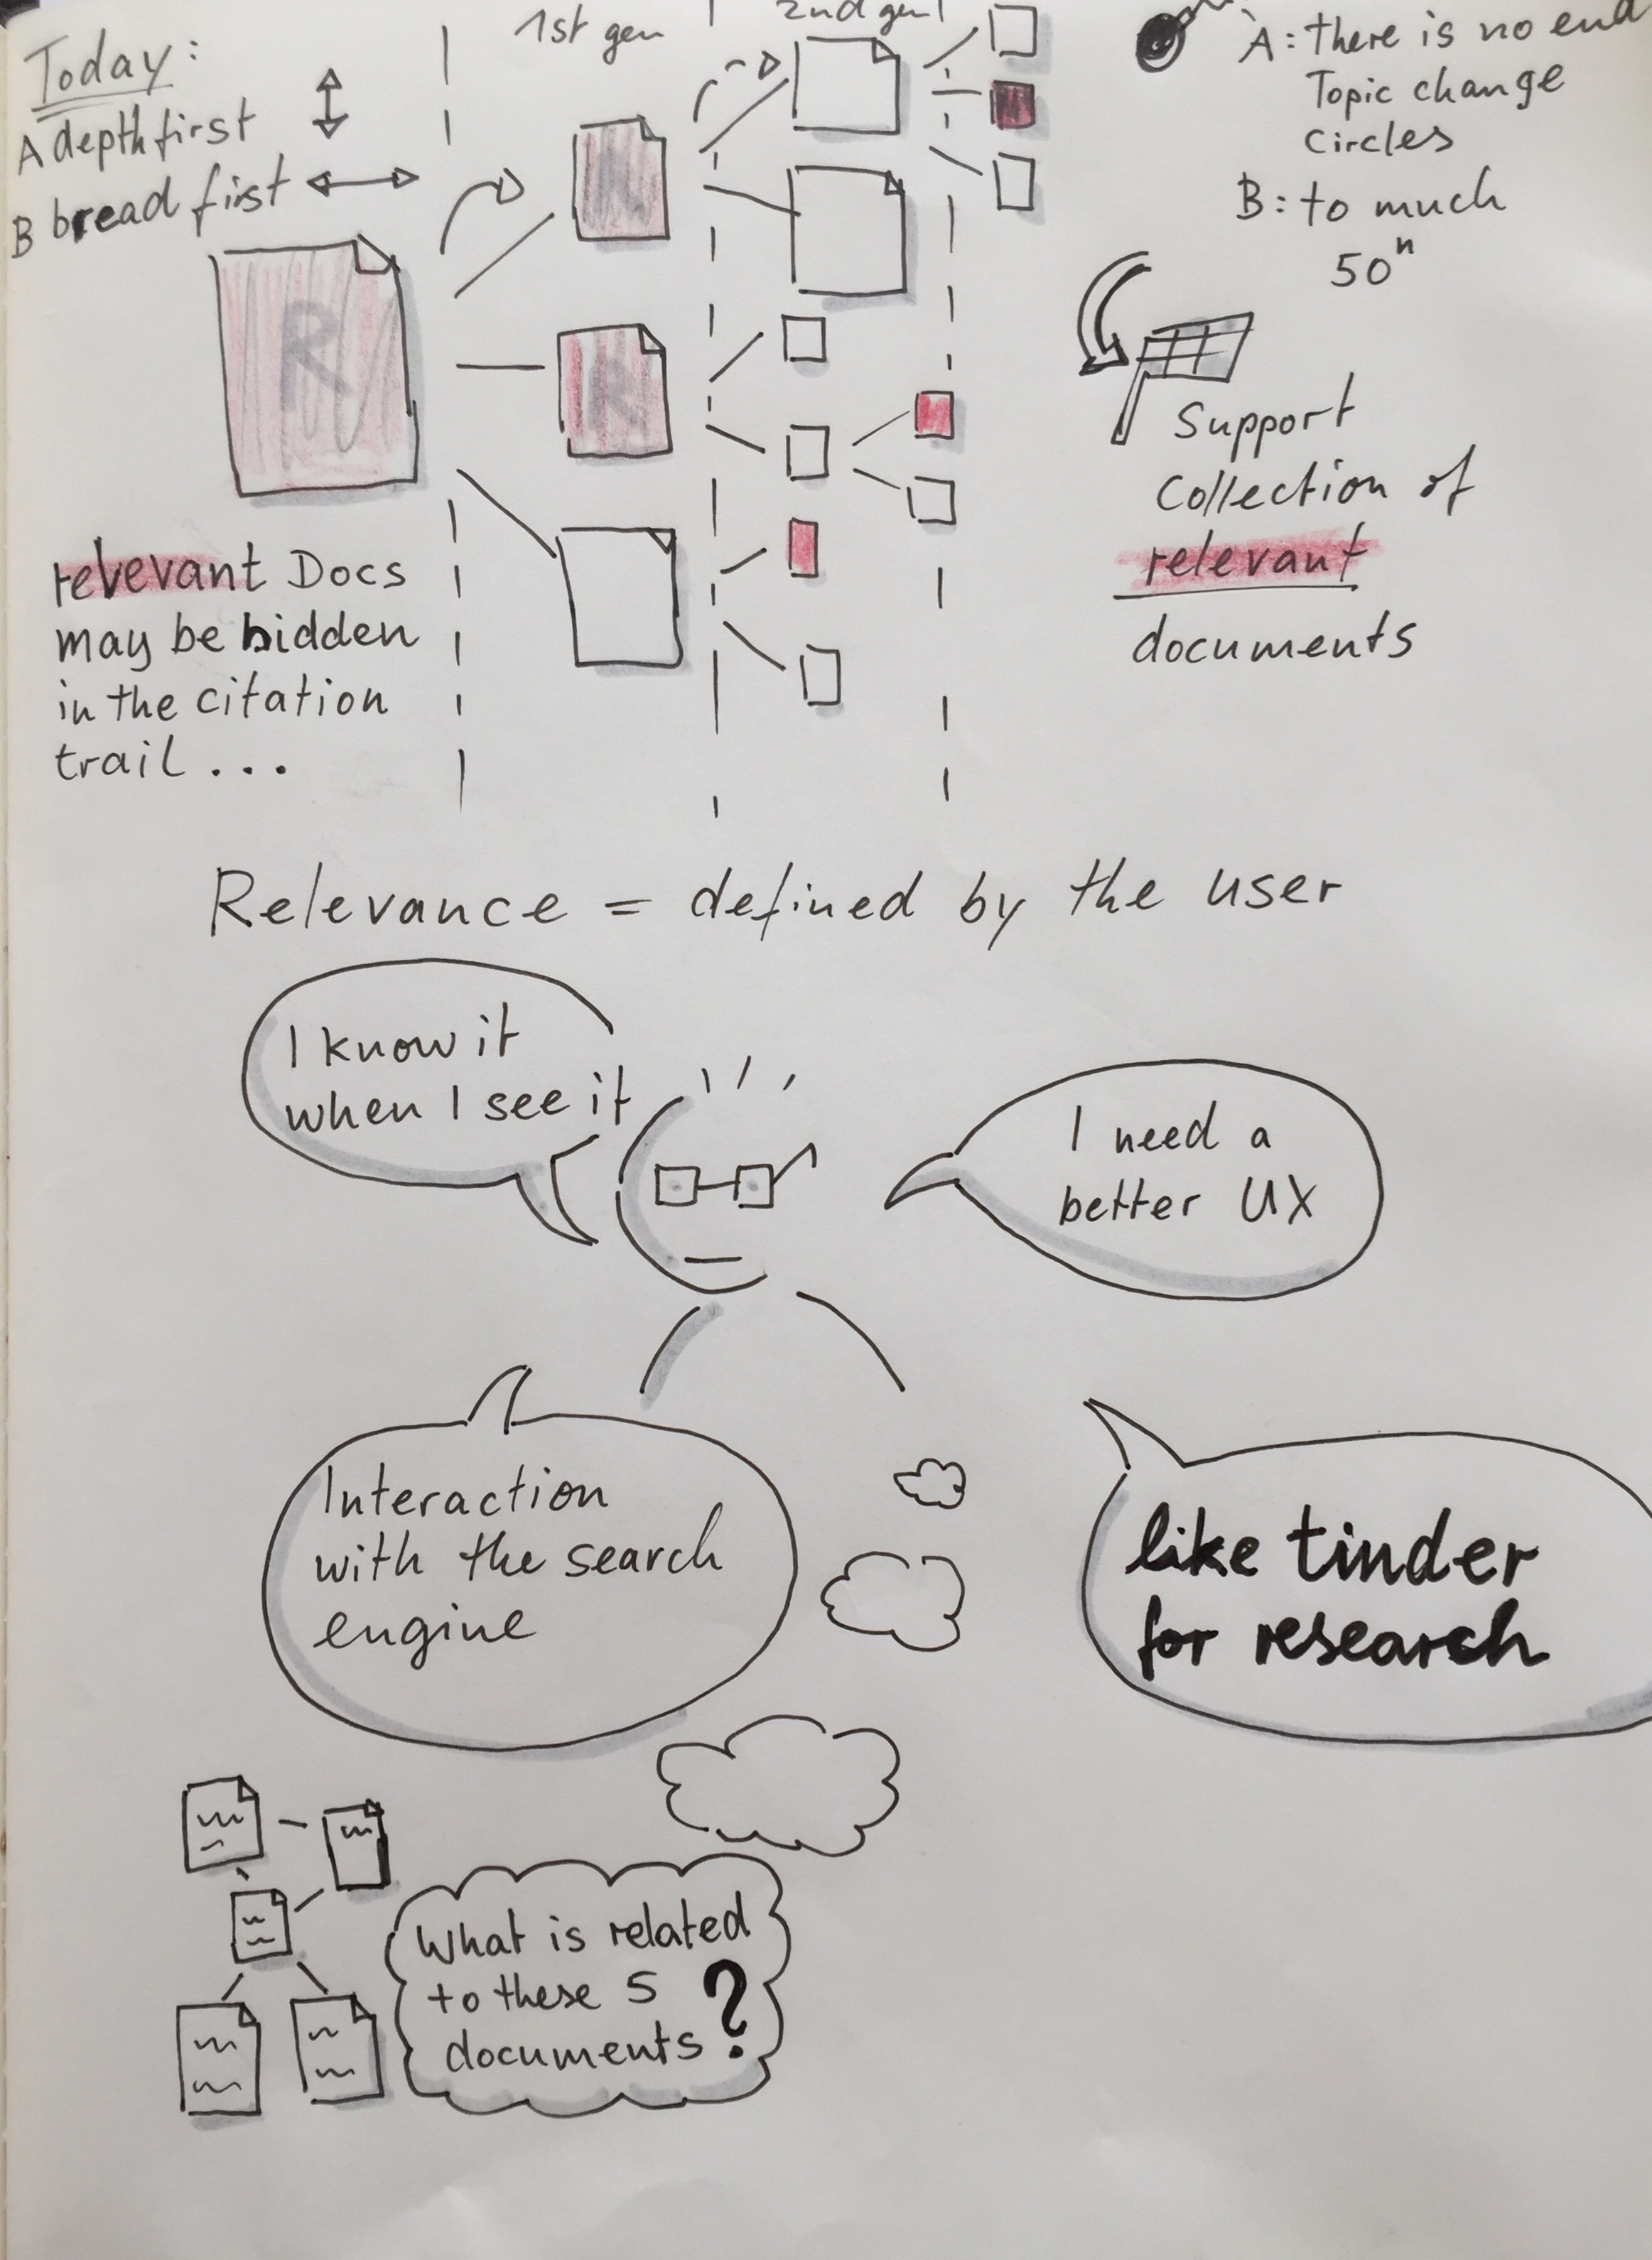 Today:
A depth first
B bread first
1st gen
2nd gen
A: there is no end
Topic change
Circles
B: to much
50ⁿ
R
R
R
Support
Collection of
relevant
documents
relevant Docs
may be hidden
in the citation
trail ...
Relevance = defined by the user
I know it
when I see it
I need a
better UX
Interaction
with the search
engine
like tinder
for research
What is related
to these 5
documents?